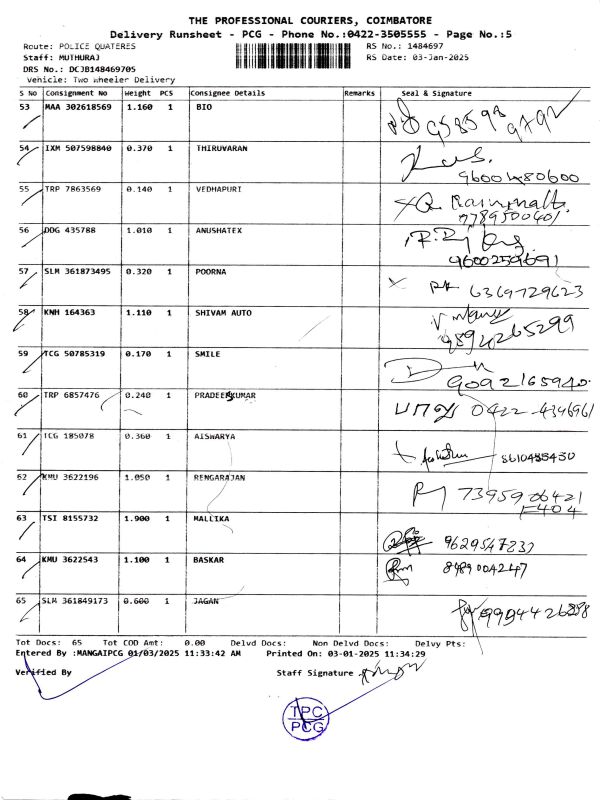 THE PROFESSIONAL COURIERS, COIMBATORE
Delivery Runsheet - PCG - Phone No.:0422-3505555 - Page No.:5
Route: POLICE QUATERES RS No.: 1484697
Staff: MUTHURAJ RS Date: 03-Jan-2025
DRS No.: DCJB148469705
Vehicle: Two Wheeler Delivery
S No Consignment No Weight PCS Consignee Details Remarks Seal & Signature
53 MAA 302618569 1.160 1 BIO
54 IXM 507598840 0.370 1 THIRUVARAN
9600480600
55 TRP 7863569 0.140 1 VEDHAPURI
7789500401
56 DDG 435788 1.010 1 ANUSHATEX
9600259691
57 SLM 361873495 0.320 1 POORNA
6369729623
58 KNH 164363 1.110 1 SHIVAM AUTO
59 TCG 50785319 0.170 1 SMILE
9092165940.
60 TRP 6857476 0.240 1 PRADEEPKUMAR
0422-4346961
61 TCG 185078 0.360 1 AISWARYA
62 KMU 3622196 1.050 1 RENGARAJAN
7395906421
F404
63 TSI 8155732 1.900 1 MALLIKA
64 KMU 3622543 1.100 1 BASKAR
8489004247
65 SLM 361849173 0.600 1 JAGAN
Tot Docs: 65 Tot COD Amt: 0.00 Delvd Docs: Non Delvd Docs: Delvy Pts:
Entered By :MANGAIPCG 01/03/2025 11:33:42 AM Printed On: 03-01-2025 11:34:29
Verified By Staff Signature
TPC
PCG